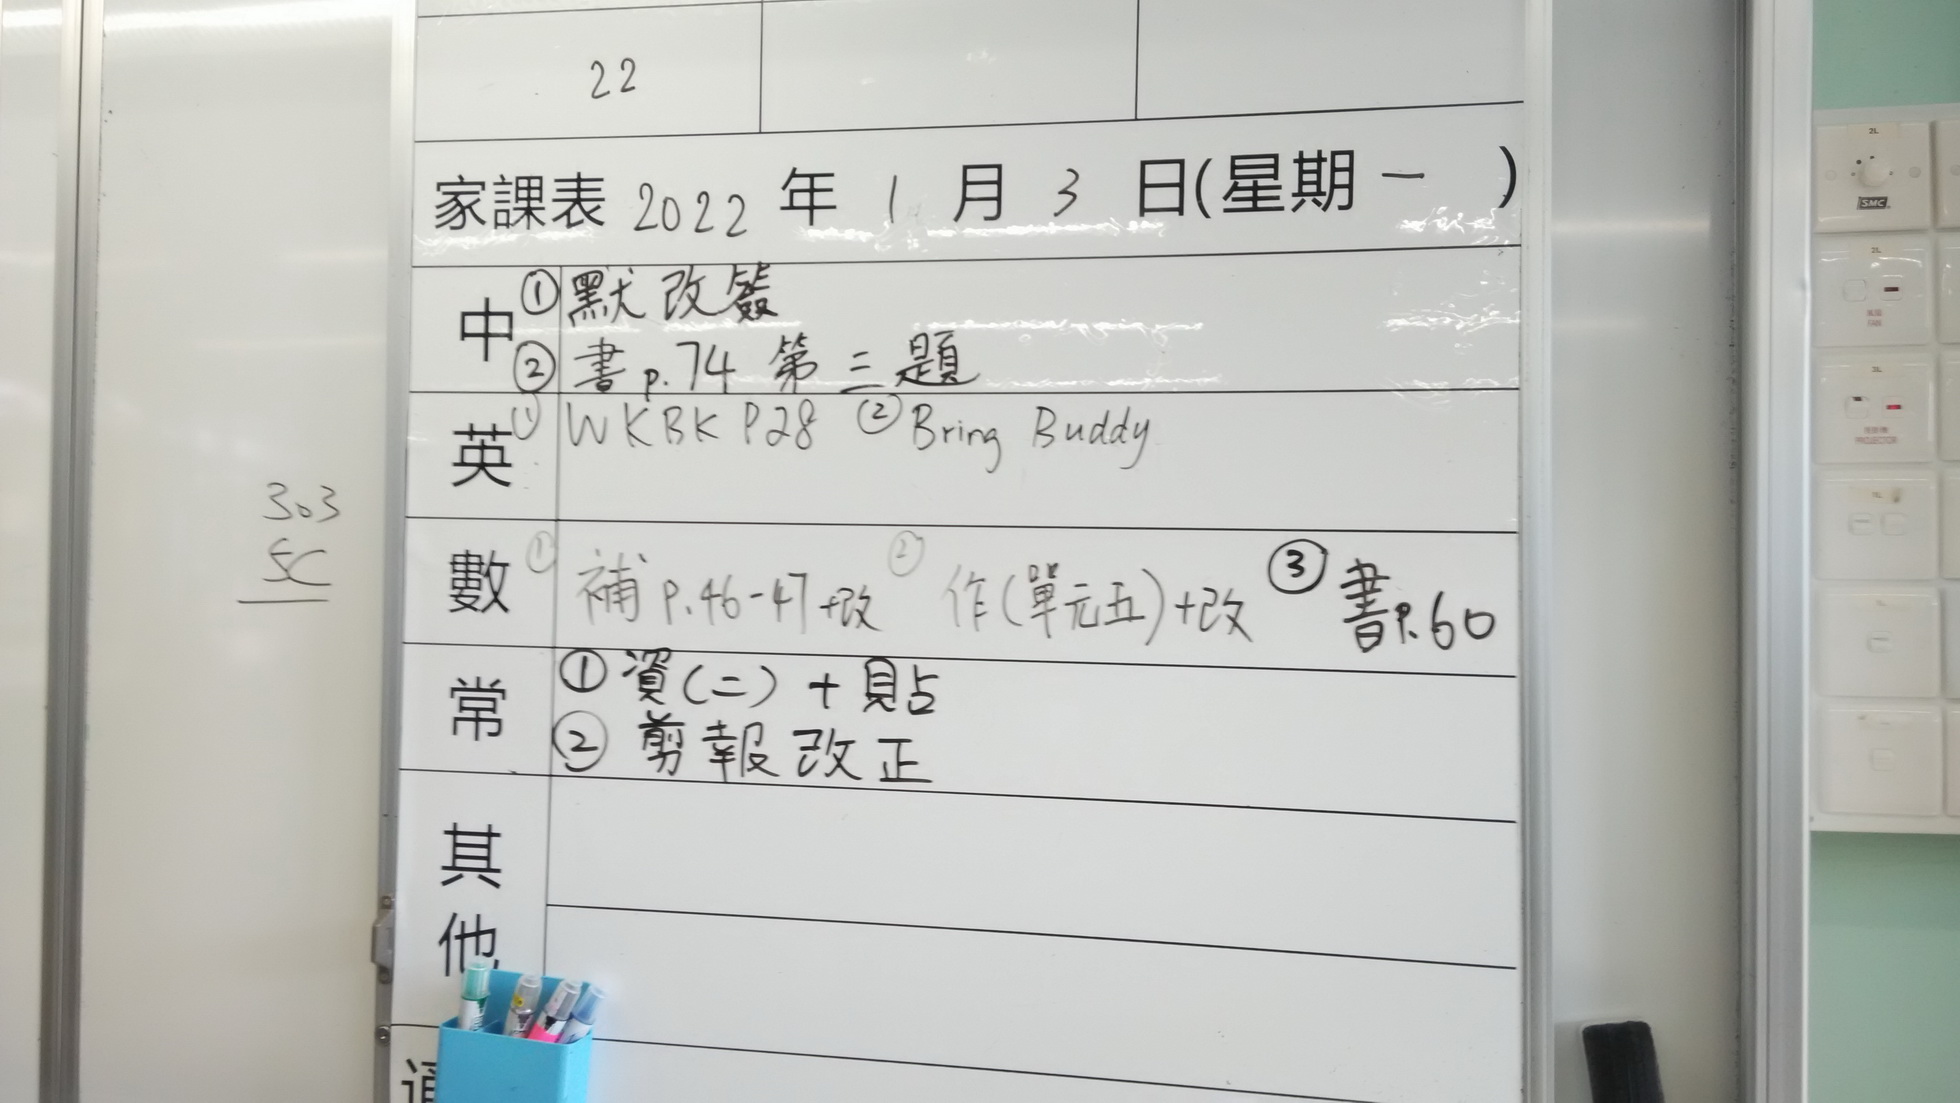 22
家課表 2022 年 1 月 3 日(星期一 )
中 ①默改簽
②書p.74 第三題
英 ① WKBK P28 ② Bring Buddy
數 ① 補 P.46-47+改 ② 作(單元五)+改 ③ 書P.60
常 ①資(二)+貼
②剪報改正
其
他
303
5C
SMC